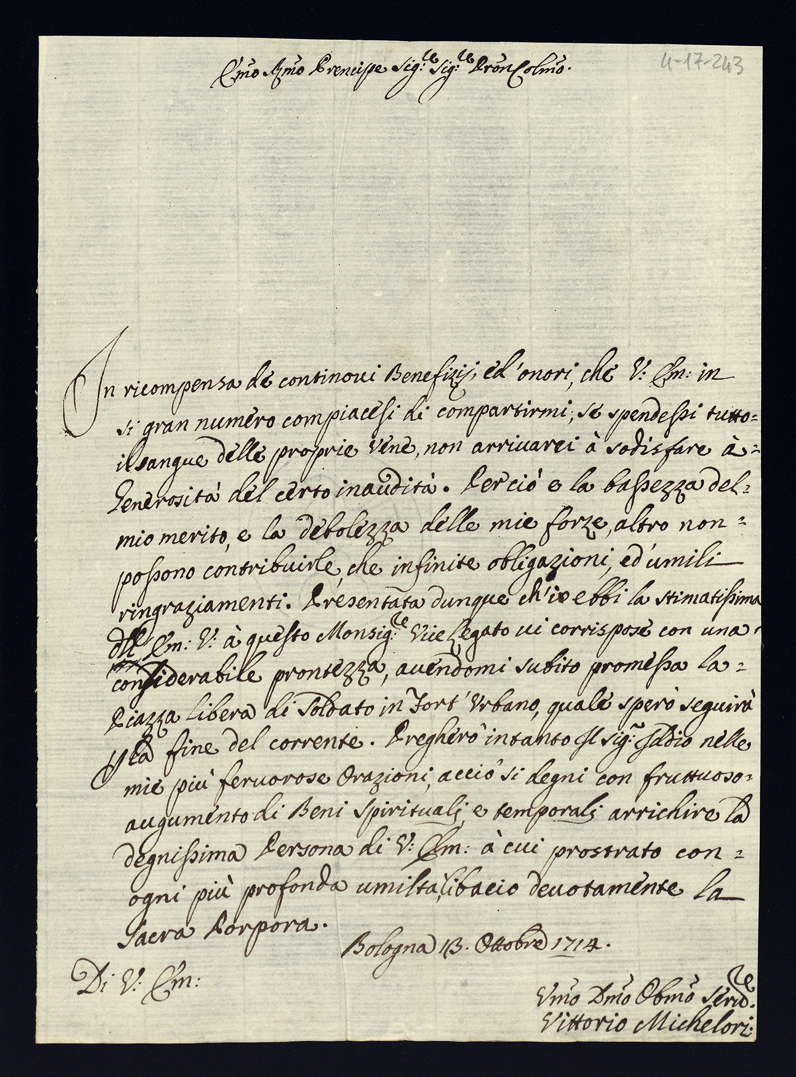 4-17-243
Emo Rmo Prencipe Sig:re Sig:re Pron Colmo.
In ricompensa de continoui Benefizij, ed'onori, che V: Em: in
si gran numero compiacesi di compartirmi, se spendessi tutto=
il sangue delle proprie vene, non arrivarei à sodisfare à=
Generosità del certo inaudità. Perciò e la bassezza del=
mio merito, e la debolezza delle mie forze, altro non=
possono contribuirle, che infinite obligazioni, ed'umili
ringraziamenti. Presentata dunque ch'io ebbi la stimatissima
dell' Em: V: à questo Monsig:re Vice Legato vi corrispose con una
considerabile prontezza, avendomi subito promessa la=
Piazza libera di Soldato in Fort' Urbano, quale sperò seguirà
la fine del corrente. Pregherò intanto il Sig:re Iddio nelle
mie più fervorose Orazioni, acciò si degni con fruttuoso=
augumento di Beni Spirituali, e temporali arrichire la
degnissima Persona di V: Em: à cui prostrato con=
ogni più profonda umiltà, li bacio devotamente la
Sacra Porpora.
Bologna 13. Ottobre 1714.
Di V: Em:
Vmo Dmo Obmo Serid:re
Vittorio Michelori